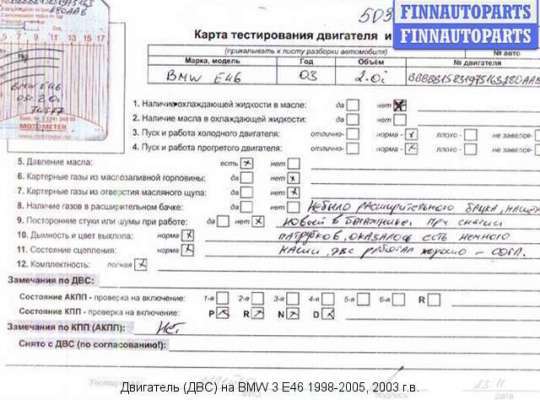 503
FINNAUTOPARTS
FINNAUTOPARTS
Карта тестирования двигателя и
(прикалывать к листу разборки автомобиля)
№ авто
Марка, модель Год Объём № двигателя
BMW E46 03 2.0i
BMW E46
03г. 2.0i
MOTOMETER
1. Наличие охлаждающей жидкости в масле: да нет
2. Наличие масла в охлаждающей жидкости: да нет
3. Пуск и работа холодного двигателя: отлично- норма - плохо - не заверле-
4. Пуск и работа прогретого двигателя: отлично- норма - плохо - не заверле-
5. Давление масла: есть нет
6. Картерные газы из маслозаливной горловины: да нет
7. Картерные газы из отверстия масляного щупа: да нет
8. Наличие газов в расширительном бачке: да нет Не было расширительного бачка, нашел
9. Посторонние стуки или шумы при работе: да нет новый в багажнике. При снятии
10. Дымность и цвет выхлопа: норма патрубков, оказалось есть немного
11. Состояние сцепления: норма двс работал хорошо -
12. Комплектность: полная
Замечания по ДВС:
Состояние АКПП - проверка на включение: 1-я 2-я 3-я 4-я 5-я 6-я R
Состояние КПП - проверка на включение: P R N D
Замечания по КПП (АКПП): Нет
Снято с ДВС (по согласованию!):
Двигатель (ДВС) на BMW 3 E46 1998-2005, 2003 г.в.
подпись дата